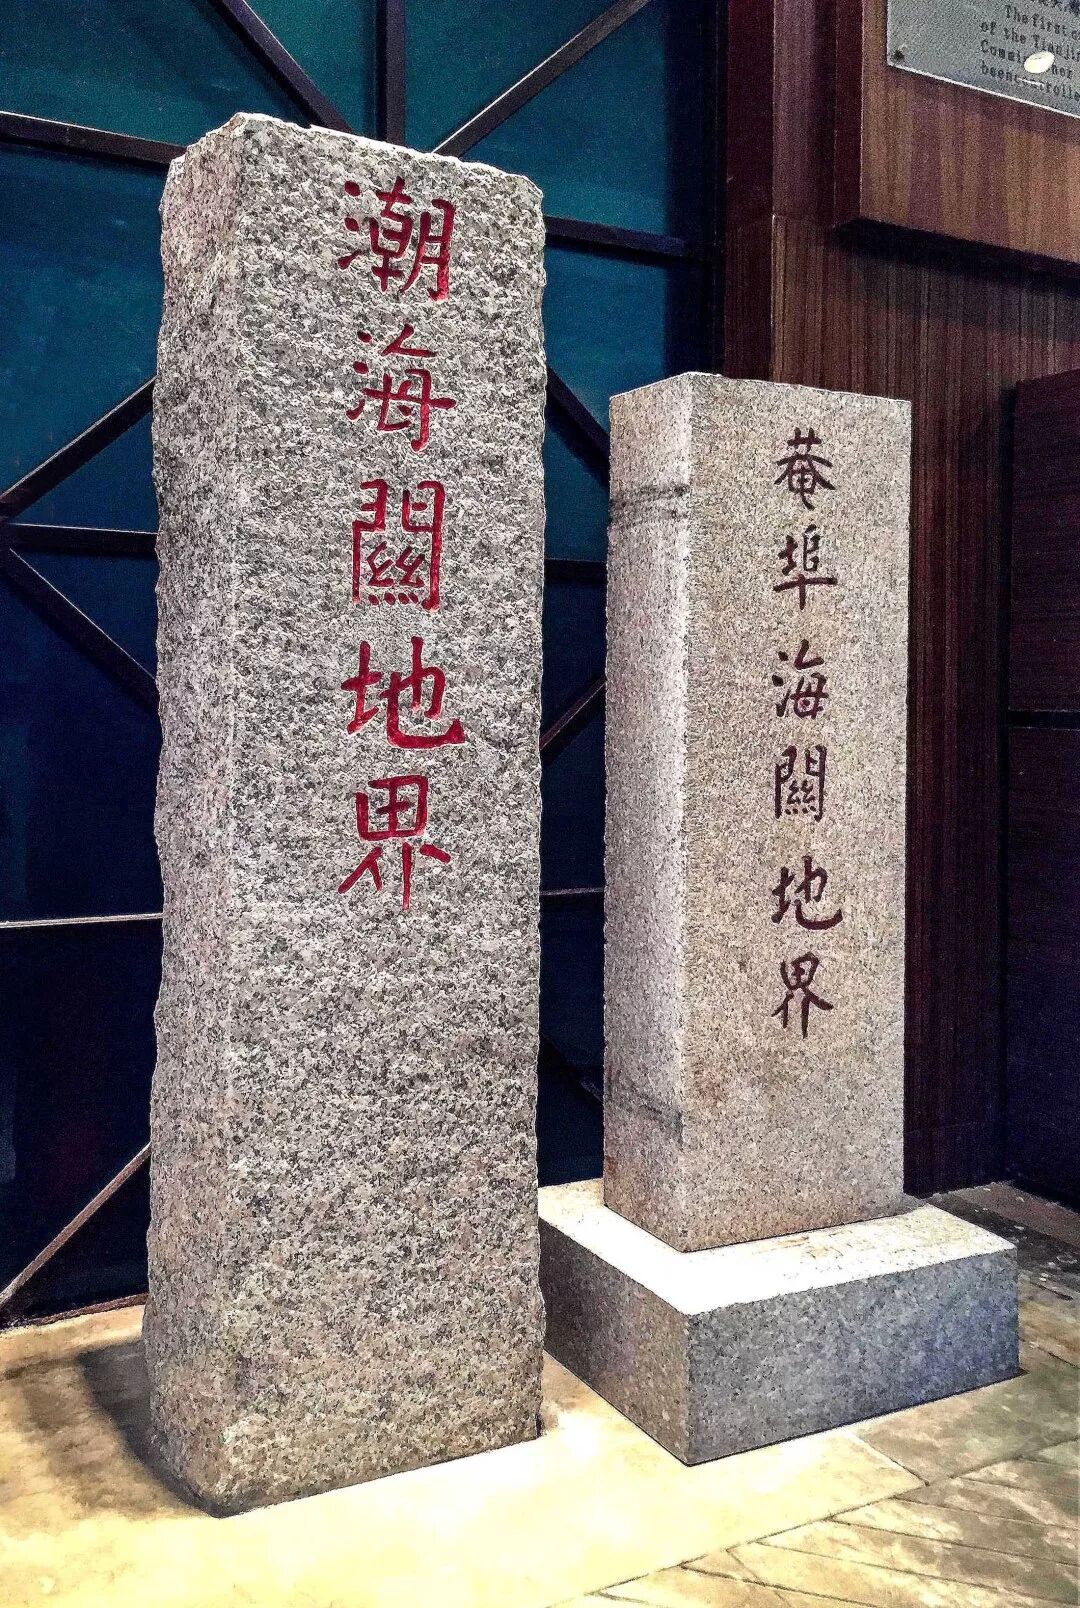 潮海關地界
菴埠海關地界
The first o
of the Tianji
Commi
her
been controlle